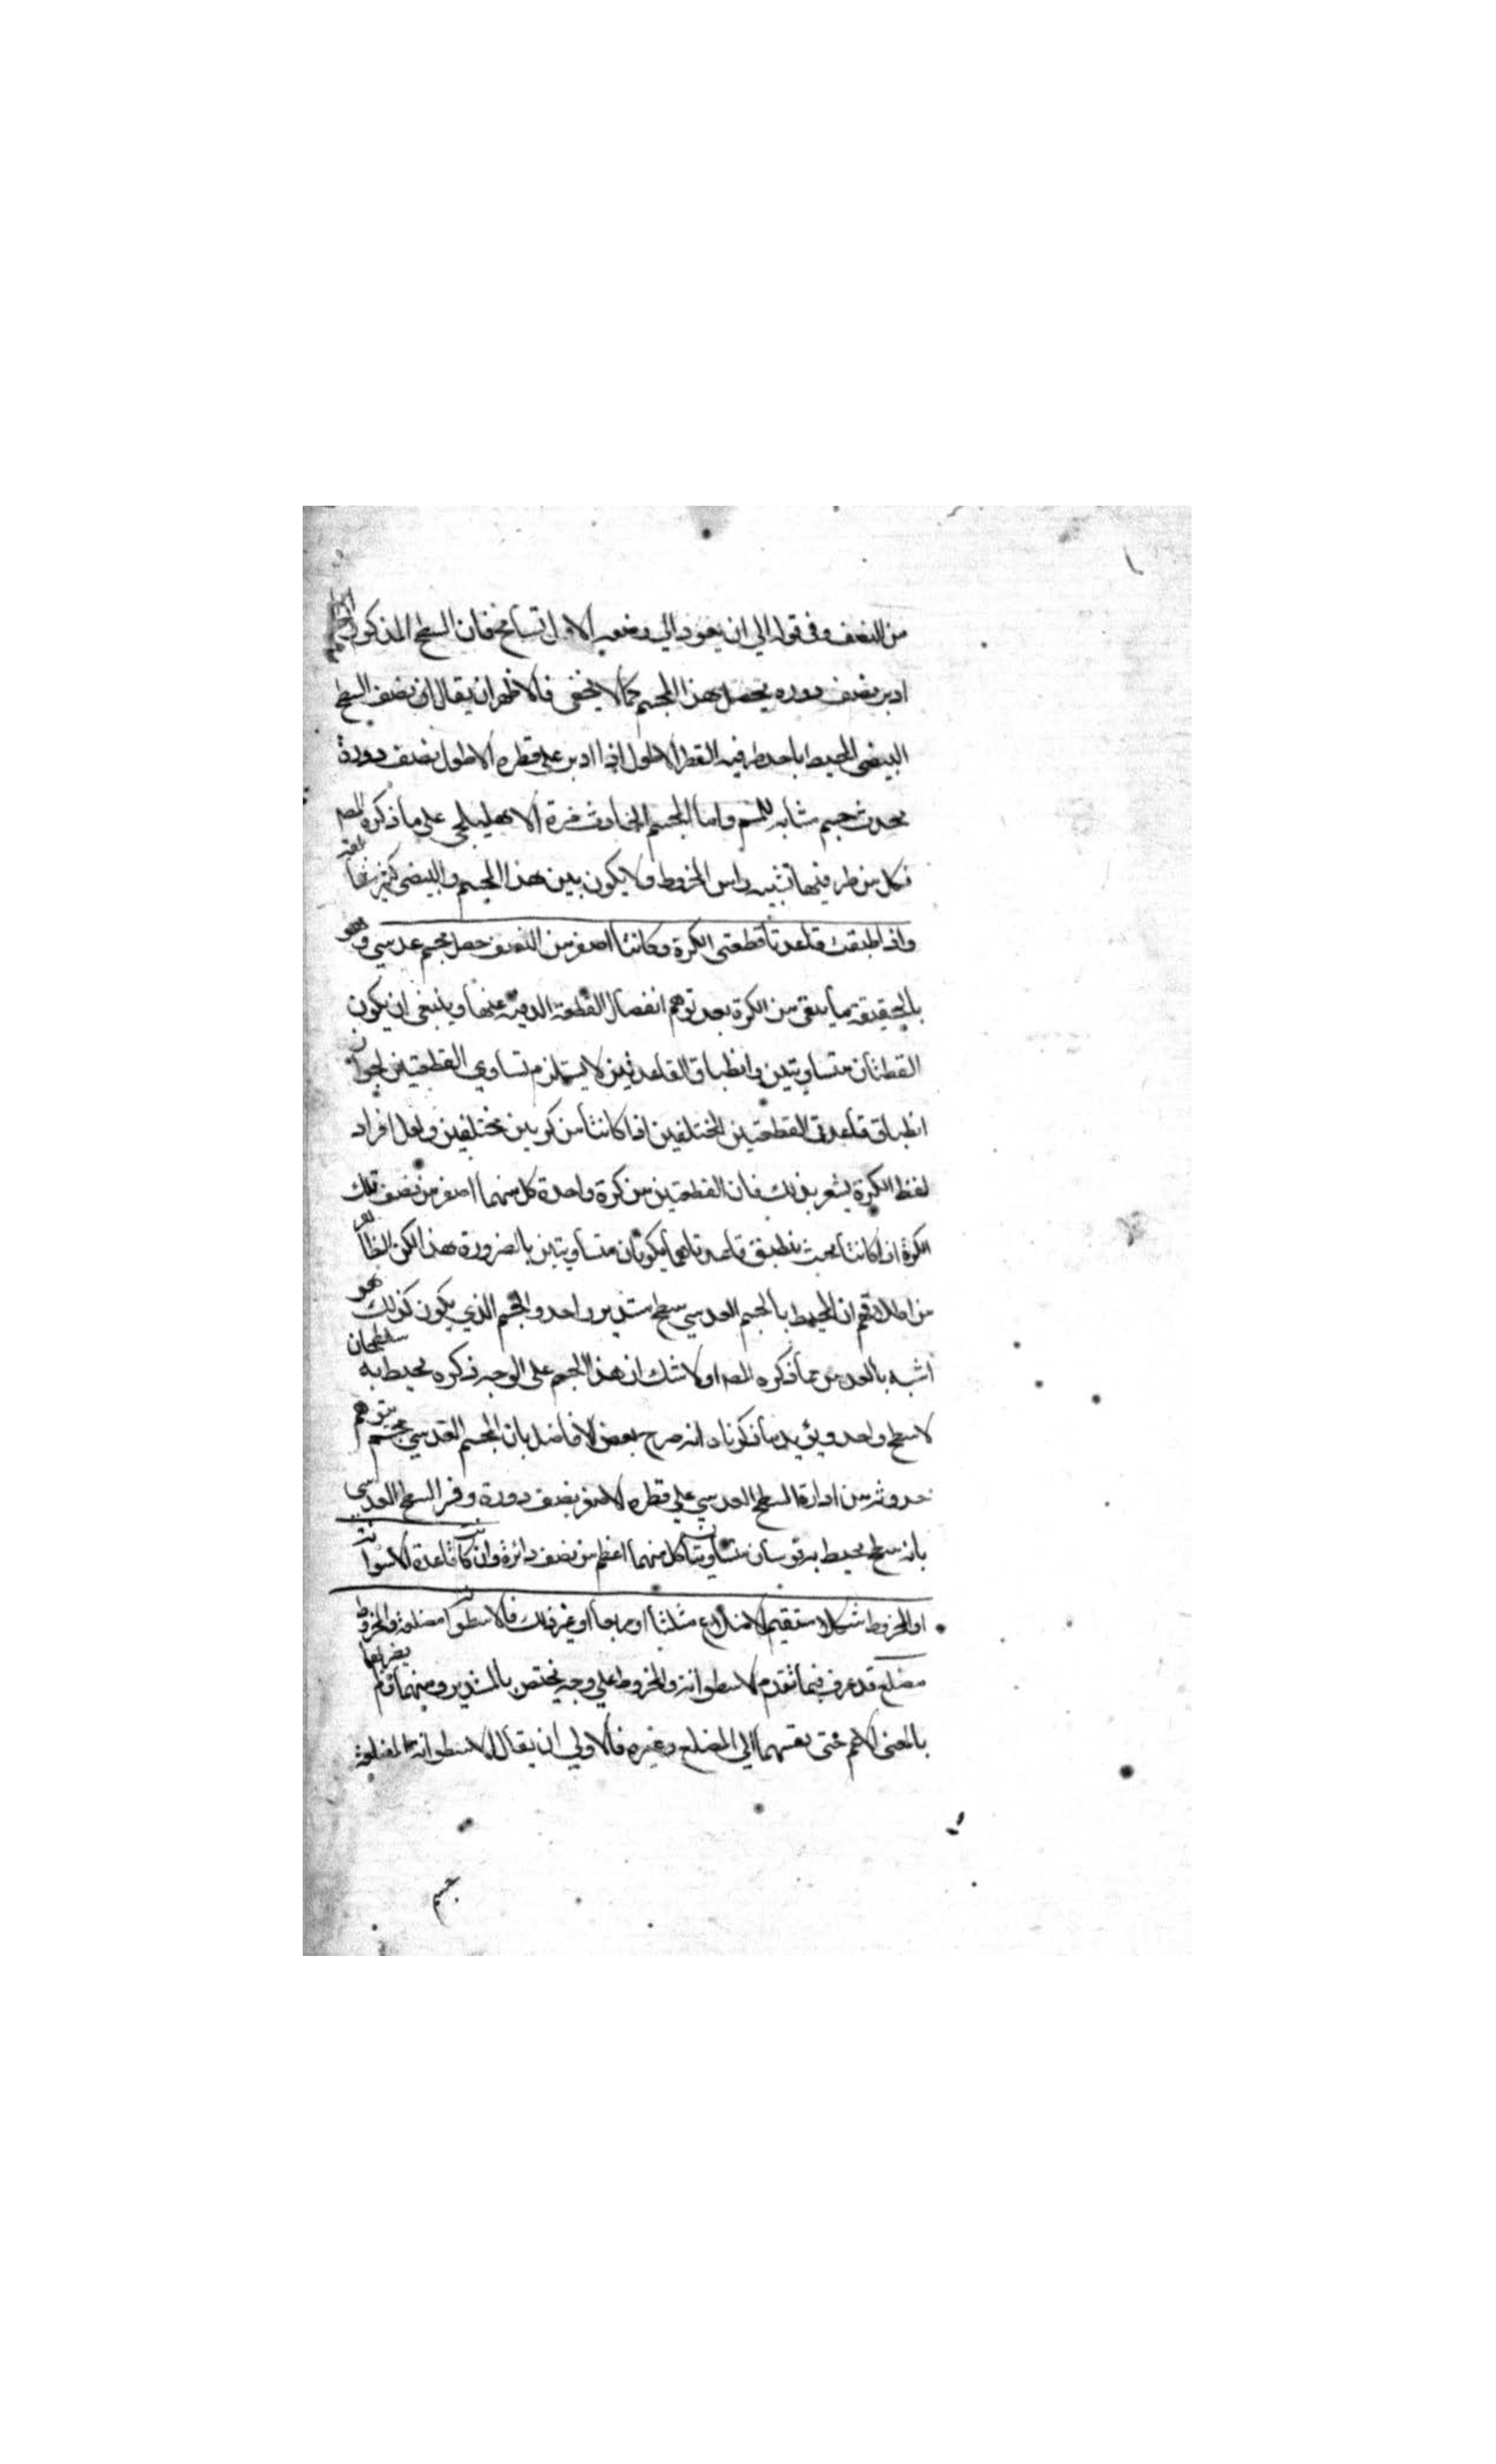 من النصف وفي قوله الي ان يعود الي وضعه الاول تسامح فان السطح المذكور
ادير نصف دوره يحصل هذا المجسم كما لا يخفى فالاظهر ان يقال ان نصف السطح
البيضي المحيط باحد طرفيه القطر الاطول اذا ادير علي قطره الاطول نصف دورة
يحدث جسم مشابه للمسم واما المجسم الحادث من الاهليلجي علي ما ذكره المصـ
فكل من طرفيها تشبيه راس المخروط ولا يكون بين هذا المجسم والبيضي كثير
واذا طبقت قاعدتا قطعتي الكرة وكانتا اصغر من النصف حصل مجسم عدسي وهو
بالحقيقة ما يبقى من الكرة بعد توهم انفصال القطعة عنها وينبغي ان يكون
القطعتان متساويتين وانطباق القاعدتين لا يستلزم تساوي القطعتين لجواز
انطباق قاعدتي القطعتين المختلفين اذا كانتا من كرتين مختلفين ولعل افراد
لفظ الكرة يشعر بذلك فان القطعتين من كرة واحدة كل منهما اصغر من نصف تلك
الكرة اذا كانتا بحيث ينطبق قاعدتاهما يكونان متساويتين بالضرورة هذا لكن الظاهر
من اطلاقهم ان المحيط بالجسم العدسي سطح مستدير واحد والجسم الذي يكون كذلك هو
اشبه بالعدس مما ذكره المصـ اولا شك ان هذا الجسم علي الوجه ذكره يحيط به سطحان
لا سطح واحد ويؤيد ما ذكرناه انه صرح بعض الافاضل بان المجسم العدسي مجسم يتوهم
حدوثه من ادارة السطح العدسي علي قطره الاصغر نصف دورة وفسر السطح العدسي
بانه سطح يحيط به قوسان متساويتان كل منهما اعظم من نصف دائرة وان كانت قاعدة الاسطوانة
او المخروط شكلا مستقيم الاضلاع مثلثا او مربعا او غير ذلك فالاسطوانة مضلعة والمخروط
مضلع قد عرف فيما تقدم الاسطوانة والمخروط علي وجه يختص بالمستدير ومنهما
بالمعنى الاعم حتى يقسمهما الي المضلع وغيره فالاولي ان يقال الاسطوانة المضلعة
جسم